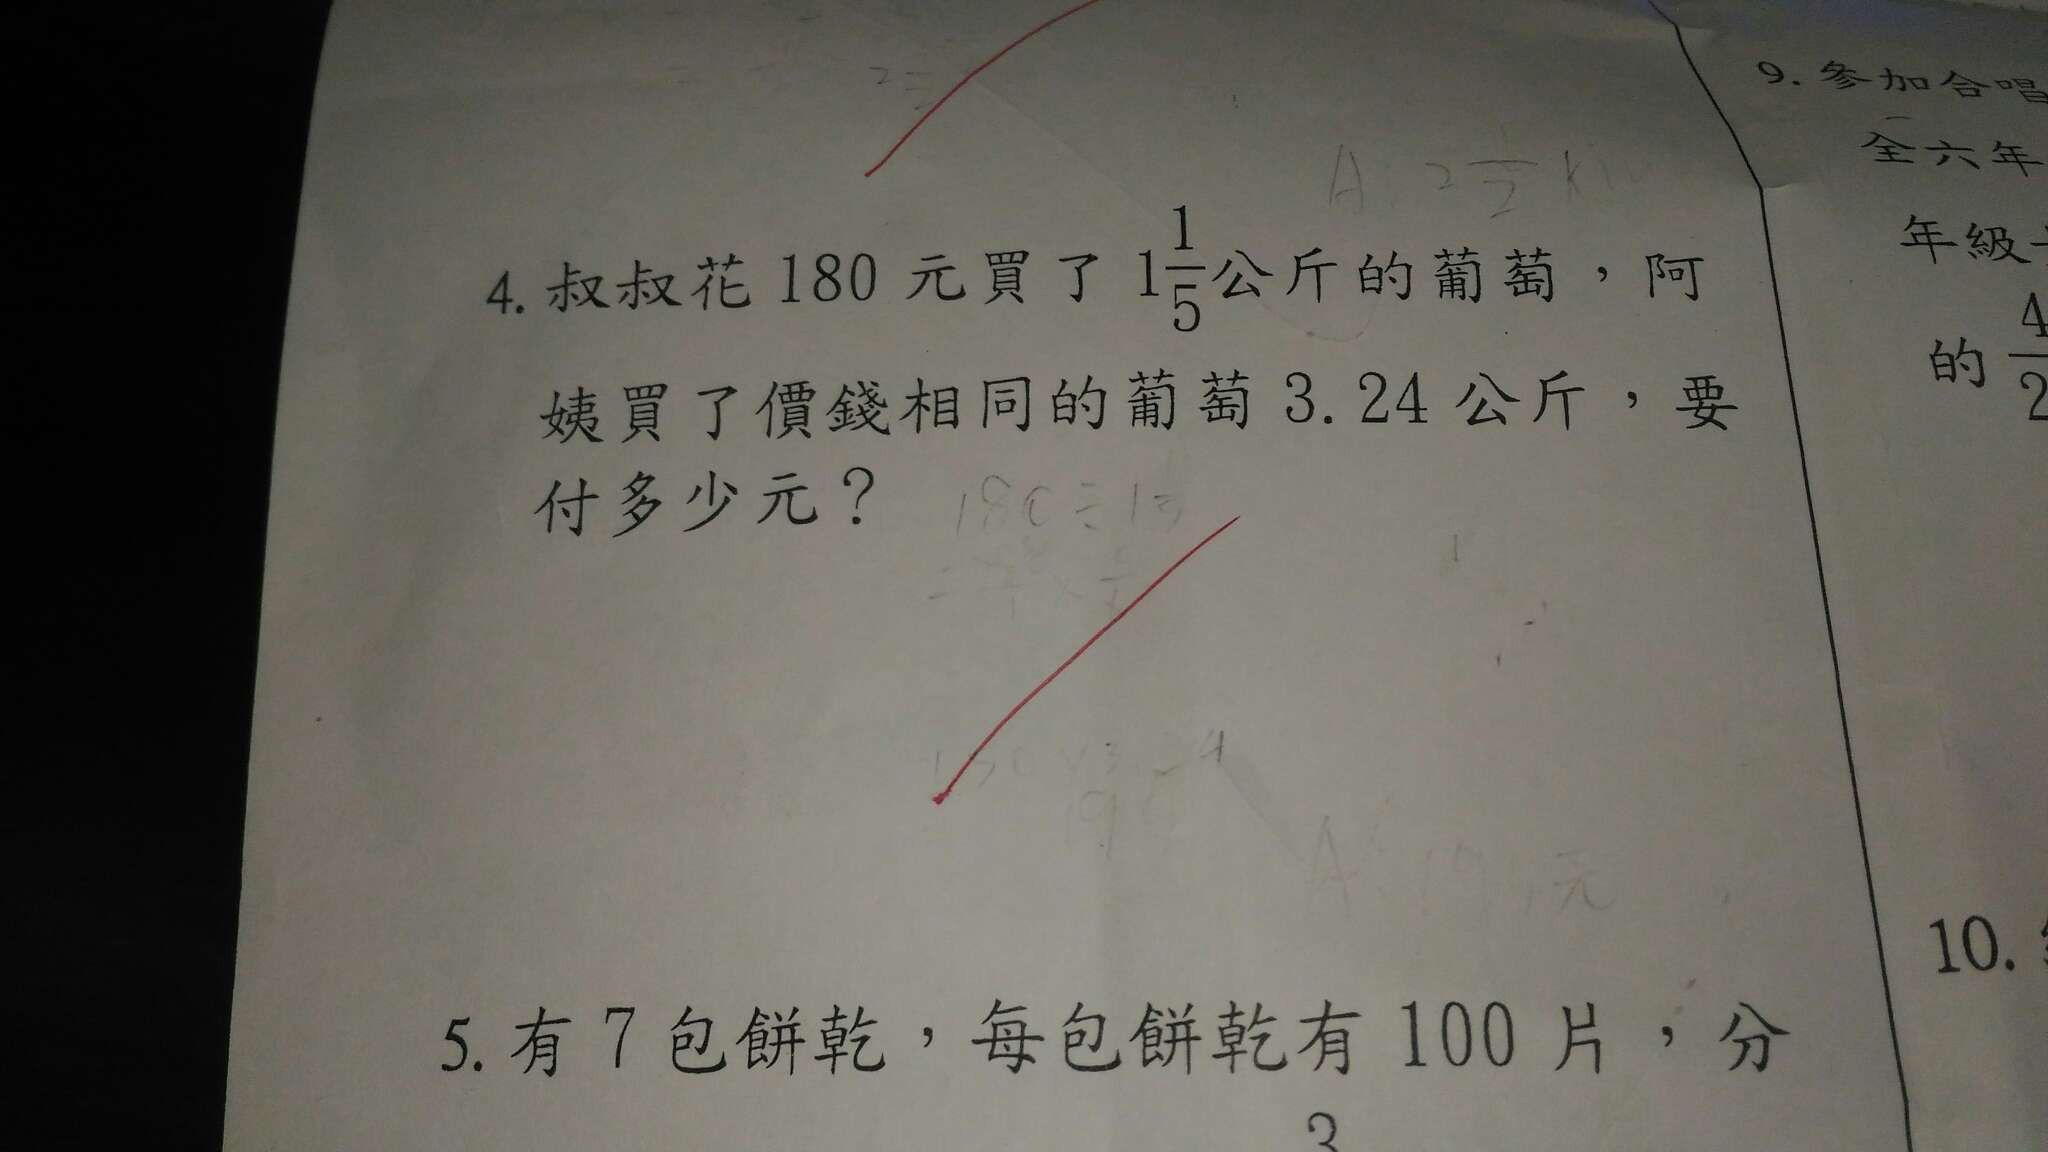 A: 2 1/2
4. 叔叔花 180 元買了 1 1/5 公斤的葡萄，阿
姨買了價錢相同的葡萄 3.24 公斤，要
付多少元？
180÷1
A: 元
5. 有 7 包餅乾，每包餅乾有 100 片，分
3
9. 參加合唱
全六年
年級
的 4/2
10.